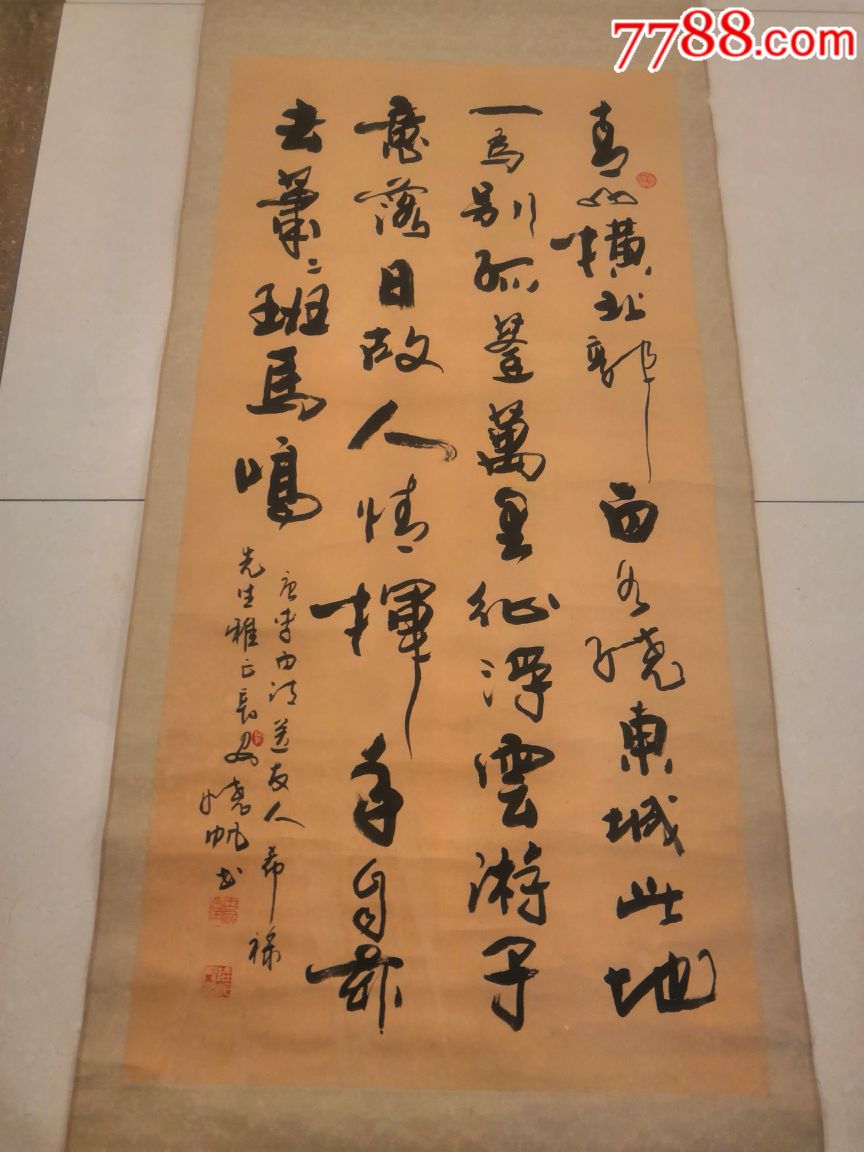 7788.com
青山橫北郭白水繞東城此地
一為別孤蓬萬里征浮雲游子
意落日故人情揮手自茲
去蕭〻班馬鳴
唐李白詩送友人希祿
先生雅正長安曉帆书